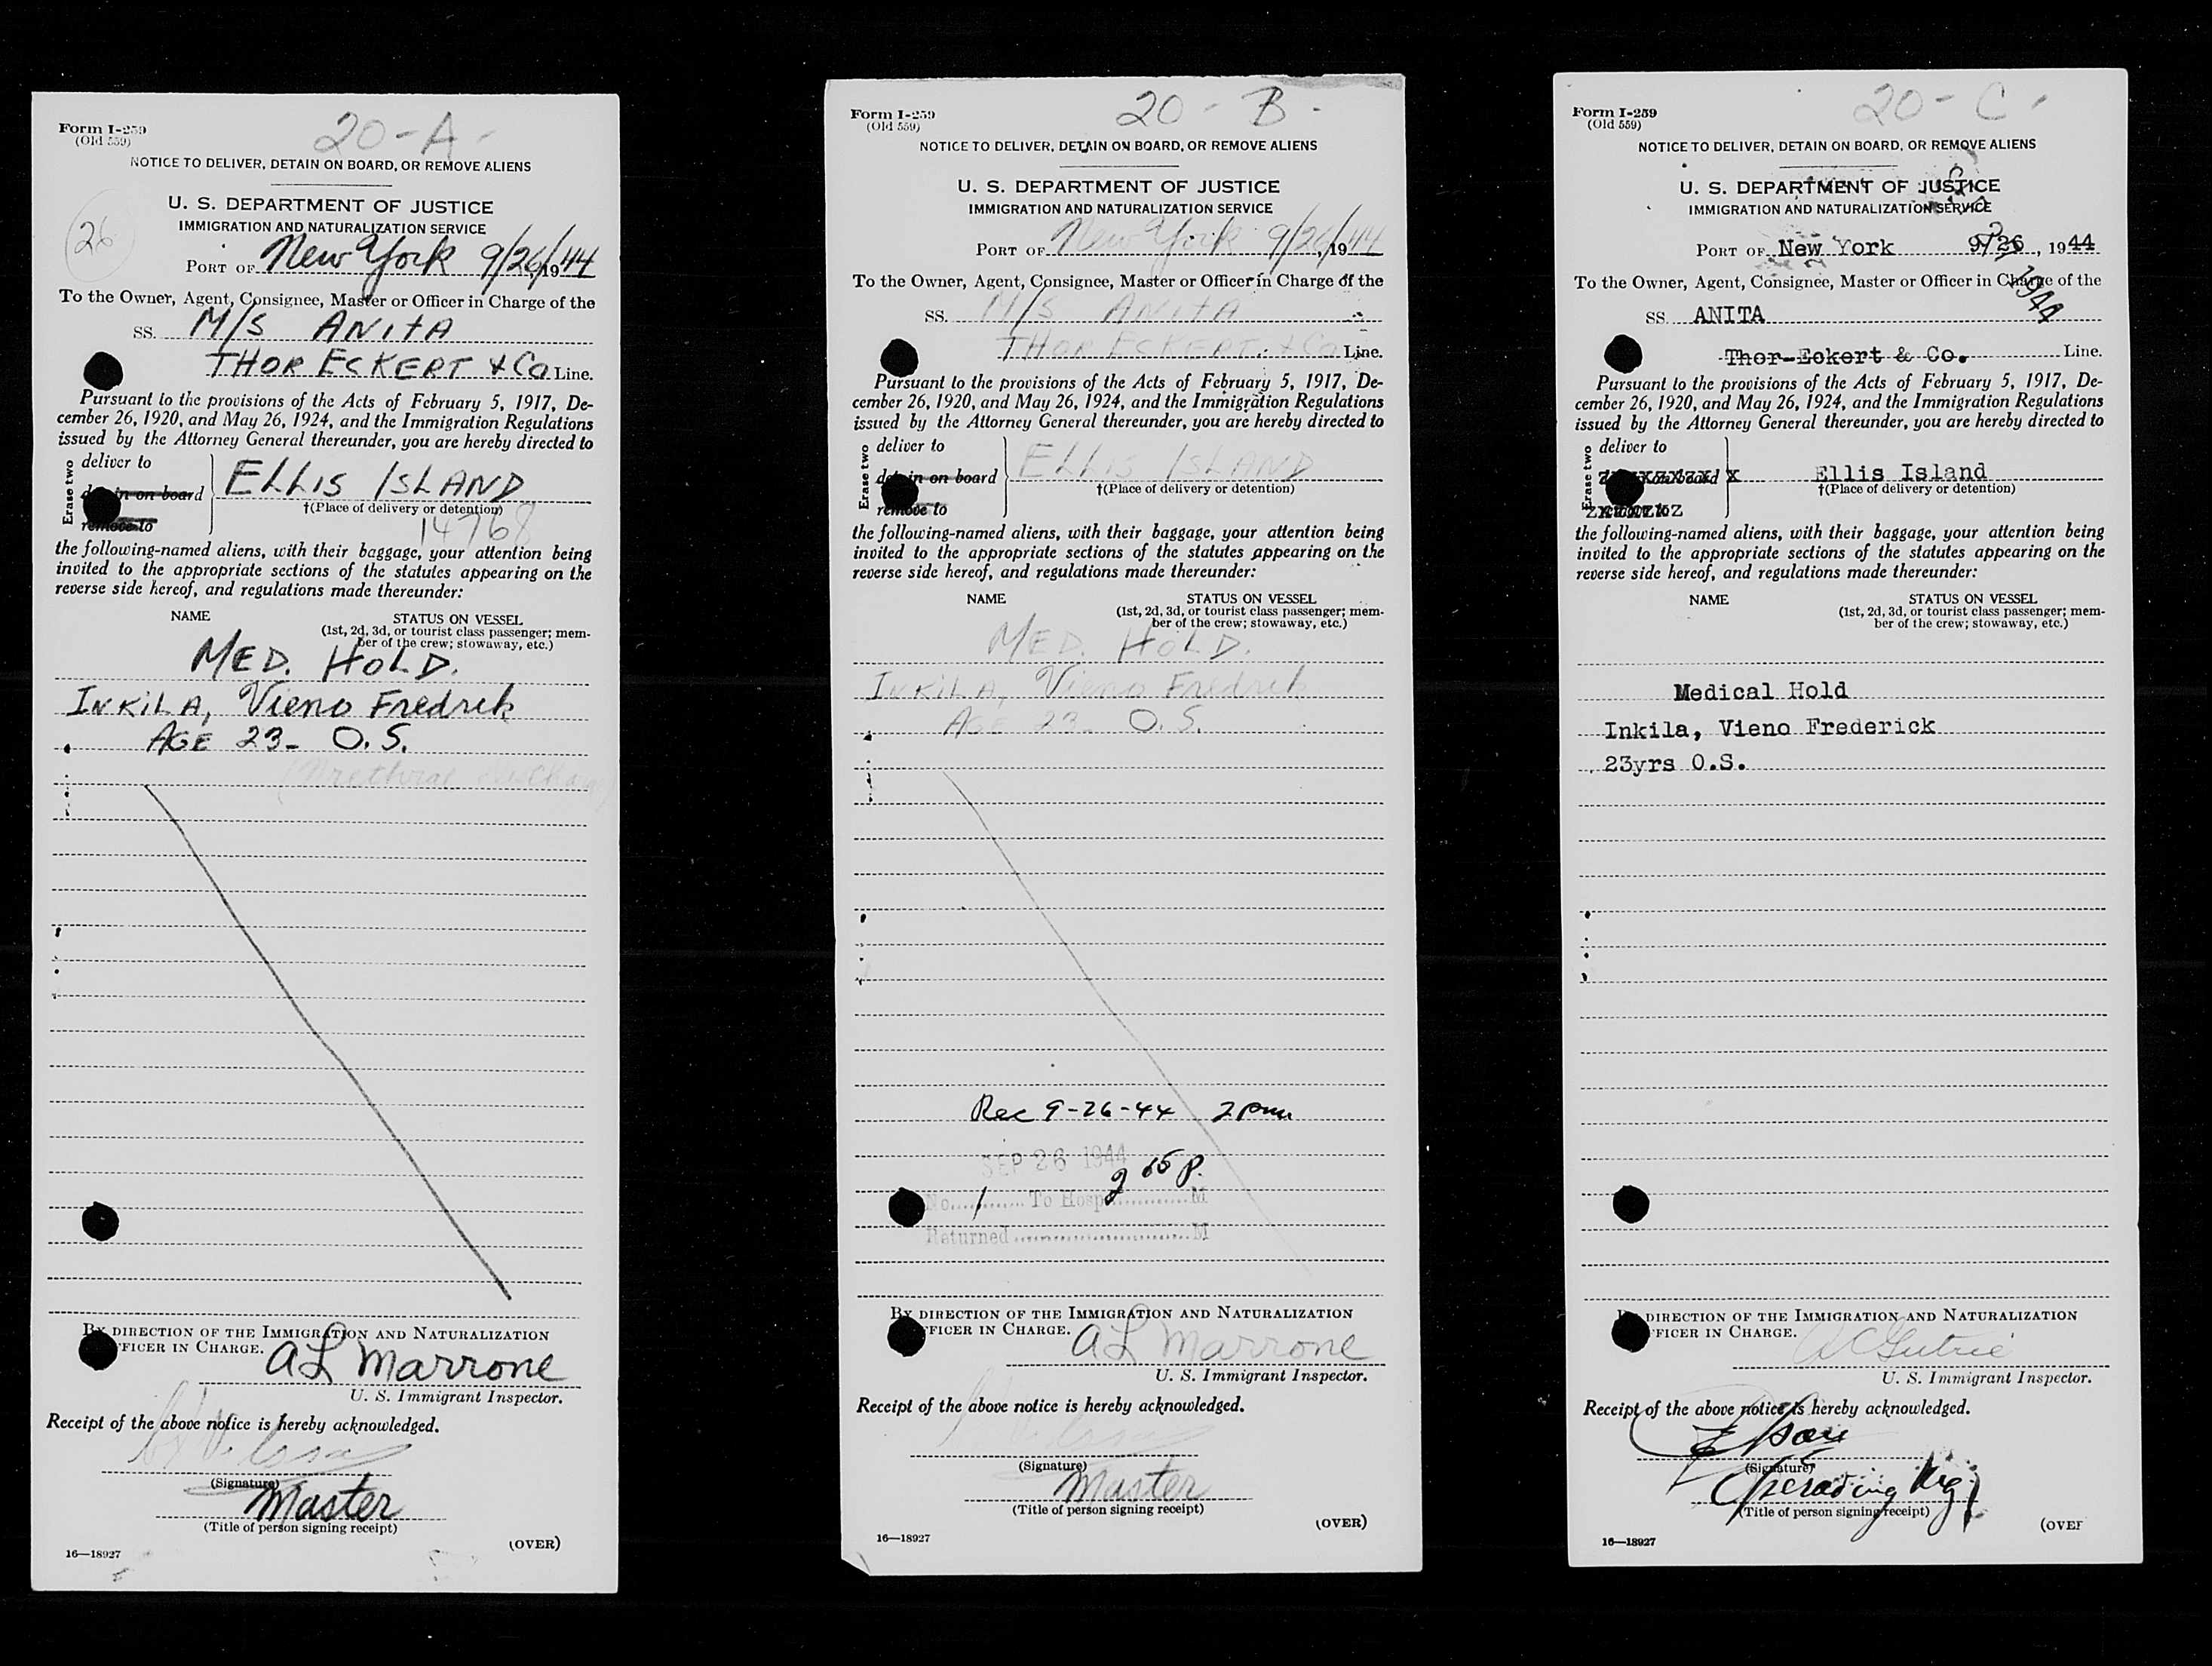 20-A-
Form I-259
(Old 559)
NOTICE TO DELIVER, DETAIN ON BOARD, OR REMOVE ALIENS
U. S. DEPARTMENT OF JUSTICE
IMMIGRATION AND NATURALIZATION SERVICE
26
PORT OF New York 9/26/1944
To the Owner, Agent, Consignee, Master or Officer in Charge of the
SS. M/S ANITA
THOR ECKERT & Co Line.
Pursuant to the provisions of the Acts of February 5, 1917, De-
cember 26, 1920, and May 26, 1924, and the Immigration Regulations
issued by the Attorney General thereunder, you are hereby directed to
Erase two
deliver to
on board
remove to
ELLIS ISLAND
†(Place of delivery or detention)
14768
the following-named aliens, with their baggage, your attention being
invited to the appropriate sections of the statutes appearing on the
reverse side hereof, and regulations made thereunder:
NAME STATUS ON VESSEL
(1st, 2d, 3d, or tourist class passenger; mem-
ber of the crew; stowaway, etc.)
MED. HOLD.
INKILA, Vieno Fredrik
AGE 23- O.S.
(Urethral discharge)
BY DIRECTION OF THE IMMIGRATION AND NATURALIZATION
FFICER IN CHARGE.
A L Marrone
U. S. Immigrant Inspector.
Receipt of the above notice is hereby acknowledged.
(Signature)
Master
(Title of person signing receipt)
(OVER)
16—18927
20 - B -
Form I-259
(Old 559)
NOTICE TO DELIVER, DETAIN ON BOARD, OR REMOVE ALIENS
U. S. DEPARTMENT OF JUSTICE
IMMIGRATION AND NATURALIZATION SERVICE
PORT OF New York 9/26/, 1944
To the Owner, Agent, Consignee, Master or Officer in Charge of the
SS. M/S ANITA
THOR ECKERT & Co Line.
Pursuant to the provisions of the Acts of February 5, 1917, De-
cember 26, 1920, and May 26, 1924, and the Immigration Regulations
issued by the Attorney General thereunder, you are hereby directed to
Erase two
deliver to
detain on board
remove to
ELLIS ISLAND
†(Place of delivery or detention)
the following-named aliens, with their baggage, your attention being
invited to the appropriate sections of the statutes appearing on the
reverse side hereof, and regulations made thereunder:
NAME STATUS ON VESSEL
(1st, 2d, 3d, or tourist class passenger; mem-
ber of the crew; stowaway, etc.)
MED. HOLD.
INKILA, Vieno Fredrik
AGE 23- O.S.
Rec 9-26-44 2 pm
SEP 26 1944
No. 1 To Hosp M
Returned M
BY DIRECTION OF THE IMMIGRATION AND NATURALIZATION
FFICER IN CHARGE.
A L Marrone
U. S. Immigrant Inspector.
Receipt of the above notice is hereby acknowledged.
(Signature)
Master
(Title of person signing receipt)
(OVER)
16—18927
20 - C -
Form I-259
(Old 559)
NOTICE TO DELIVER, DETAIN ON BOARD, OR REMOVE ALIENS
U. S. DEPARTMENT OF JUSTICE
IMMIGRATION AND NATURALIZATION SERVICE
PORT OF New York 9/26, 1944
1944
To the Owner, Agent, Consignee, Master or Officer in Charge of the
SS. ANITA
Thor-Eckert & Co. Line.
Pursuant to the provisions of the Acts of February 5, 1917, De-
cember 26, 1920, and May 26, 1924, and the Immigration Regulations
issued by the Attorney General thereunder, you are hereby directed to
Erase two
deliver to
Ellis Island
†(Place of delivery or detention)
the following-named aliens, with their baggage, your attention being
invited to the appropriate sections of the statutes appearing on the
reverse side hereof, and regulations made thereunder:
NAME STATUS ON VESSEL
(1st, 2d, 3d, or tourist class passenger; mem-
ber of the crew; stowaway, etc.)
Medical Hold
Inkila, Vieno Frederick
23yrs O.S.
DIRECTION OF THE IMMIGRATION AND NATURALIZATION
FFICER IN CHARGE.
U. S. Immigrant Inspector.
Receipt of the above notice is hereby acknowledged.
(Signature)
Operating Mgr
(Title of person signing receipt)
(OVER
16—18927